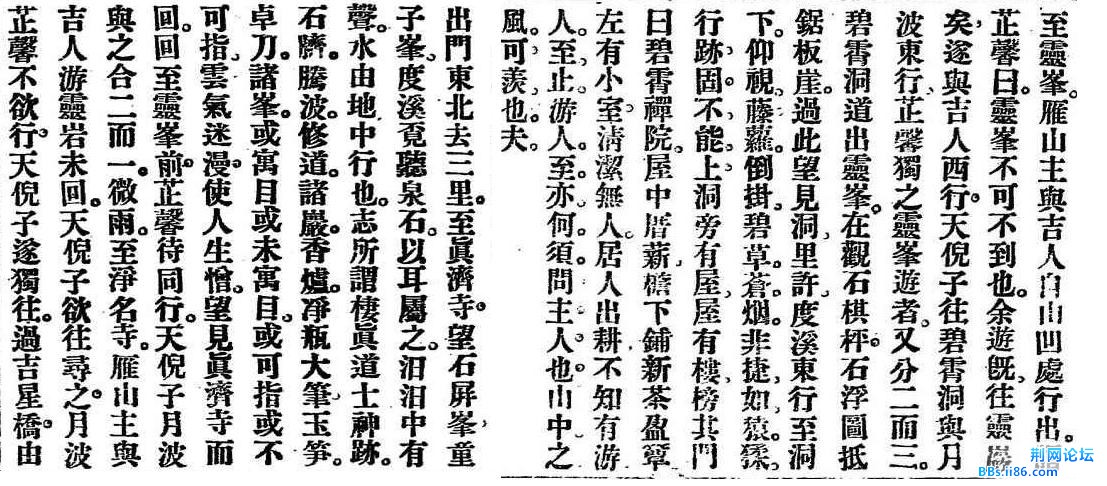 至靈峯。雁山主與吉人自山凹處行出。
芷馨曰。靈峯不可不到也。余遊既往靈巖
矣。遂與吉人西行。天倪子往碧霄洞與月
波東行。芷馨獨之靈峯遊者。又分二而三。
碧霄洞道出靈峯。在觀石棋枰。石浮圖抵
鋸板崖。過此望見洞。里許。度溪東行。至洞
下。仰視。藤蘿。倒掛。碧草。蒼烟。非捷如。猿猱。
行跡。固。不能。上。洞旁有屋。屋有樓。榜其門
曰碧霄禪院。屋中厝薪。檐下鋪新茶盈簟
左有小室。清潔無人。居人出耕。不知有游
人。至止。游人。至。亦。何。須。問主。人。也。山中之
風。可羨。也。夫。
出門東北去三里。至眞濟寺。望石屏峯。童
子峯。度溪覔聽泉石。以耳屬之。汩汩中有
聲。水由地中行也。志所謂棲眞道士神跡。
石臍。騰波。修道。諸巖。香爐。凈瓶。大筆。玉笋。
卓刀。諸峯。或寓目或未寓目。或可指或不
可指。雲氣迷漫。使人生憎。望見眞濟寺而
回。回至靈峯前。芷馨待同行。天倪子月波
與之合二而一。微雨。至淨名寺。雁山主與
吉人游靈岩未回。天倪子欲往尋之。月波
芷馨不欲行。天倪子遂獨往。過吉星橋。由
荆网论坛
BBs.ii86.com